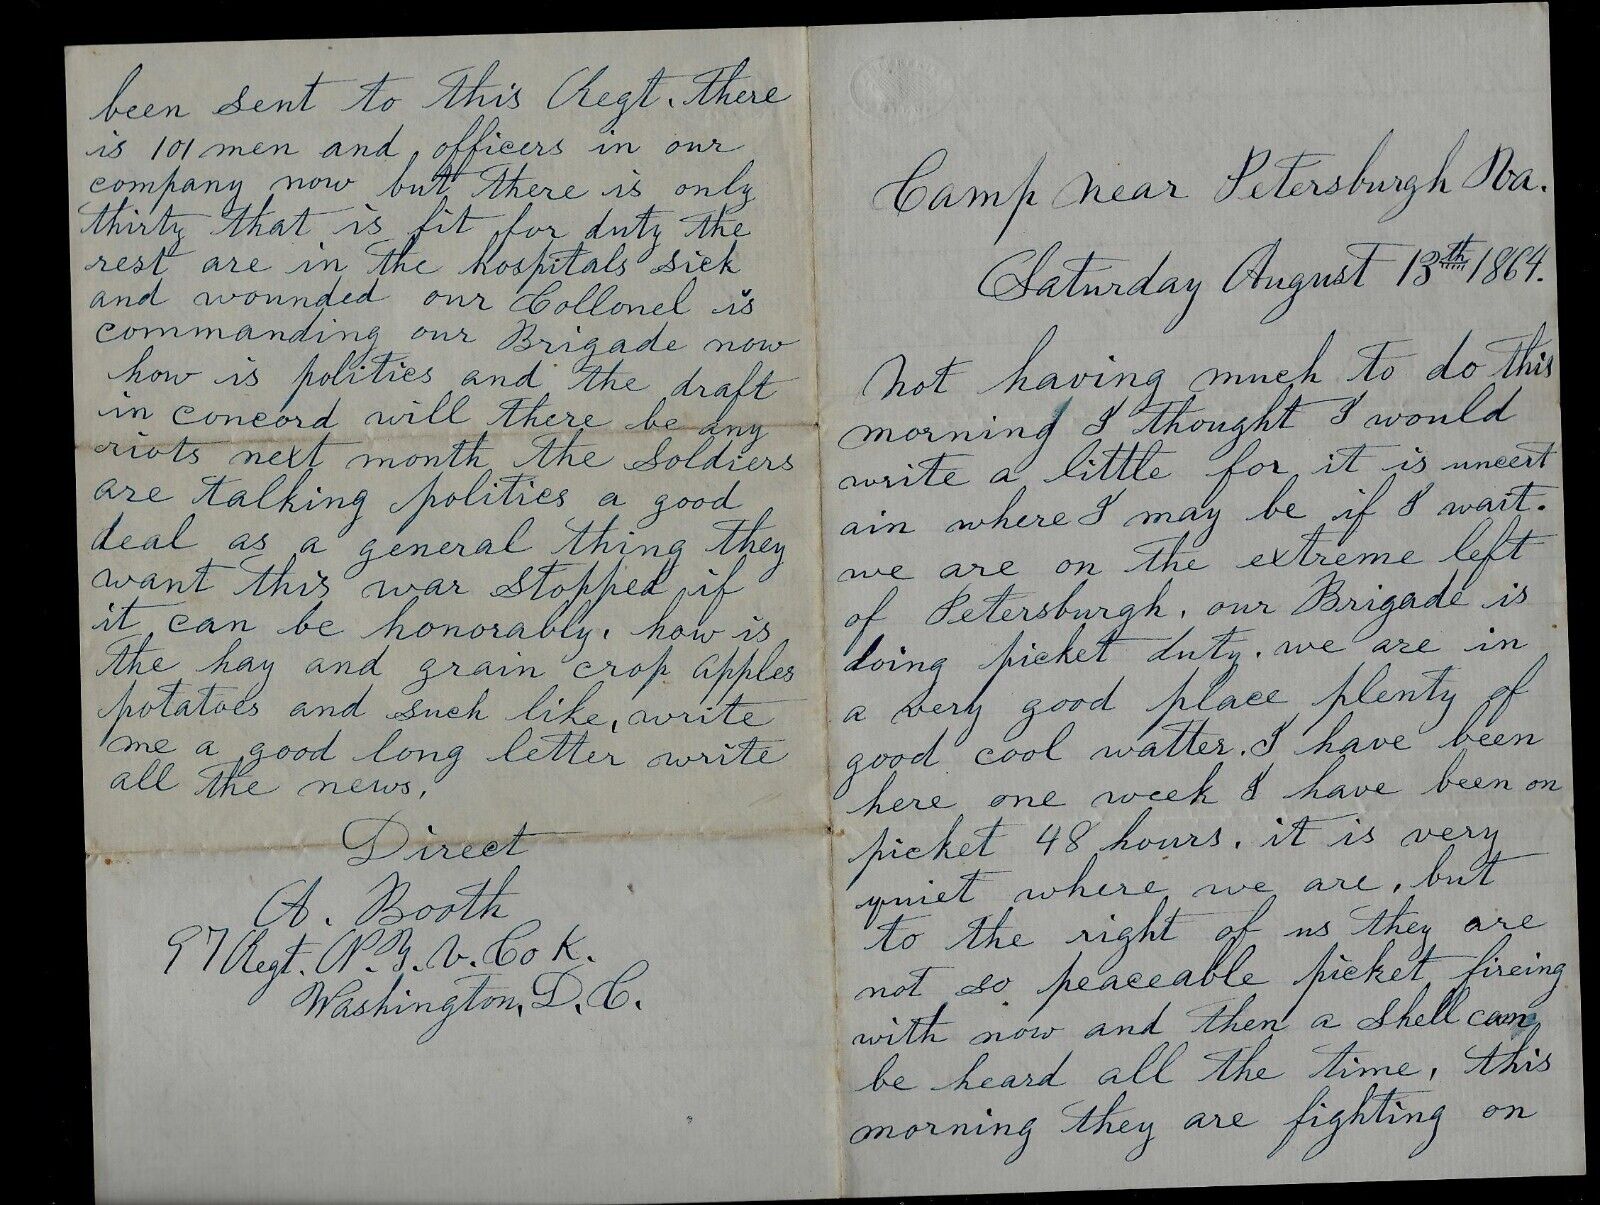 Camp near Petersburgh Va.
Saturday August 13th 1864.
Not having much to do this
morning I thought I would
write a little for it is uncert
ain where I may be if I wait.
we are on the extreme left
of Petersburgh, our Brigade is
doing picket duty. we are in
a very good place plenty of
good cool watter. I have been
here one week I have been on
picket 48 hours. it is very
quiet where we are, but
to the right of us they are
not so peaceable picket fireing
with now and then a shell can
be heard all the time, this
morning they are fighting on
been sent to this Regt. there
is 101 men and officers in our
company now but there is only
thirty that is fit for duty the
rest are in the hospitals sick
and wounded our Collonel is
commanding our Brigade now
how is politics and the draft
in concord will there be any
riots next month the Soldiers
are talking politics a good
deal as a general thing they
want this war stopped if
it can be honorably. how is
the hay and grain crop apples
potatoes and such like, write
me a good long letter write
all the news.
Direct
A. Booth
97 Regt. N.Y.V. Co K.
Washington, D.C.